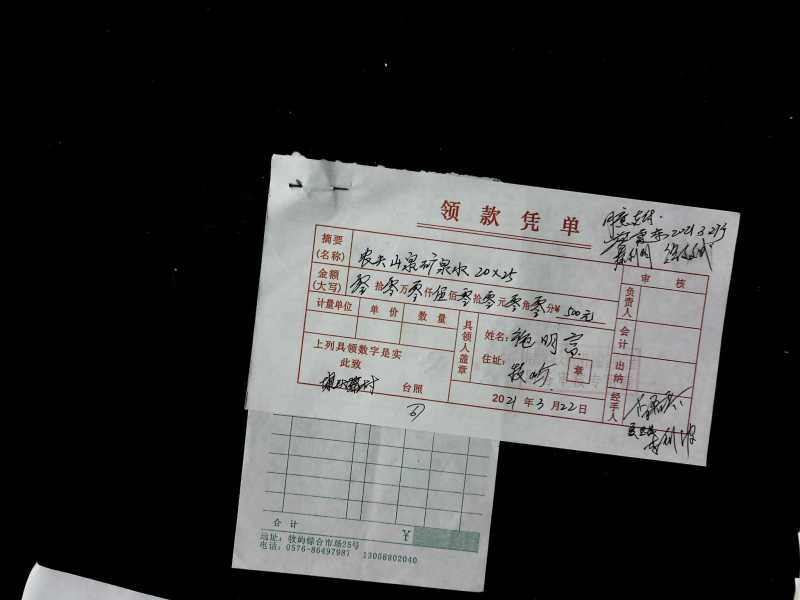 领款凭单
同意支付.
2021.3.24
摘要
(名称) 农夫山泉矿泉水 20×25
金额
(大写) 零拾零万零仟伍佰零拾零元零角零分¥ 500元
审核
计量单位 单价 数量
具领人盖章
姓名: 明富
住址: 牧屿
章
负责人
会计
出纳
经手人
上列具领数字是实
此致
台照
2021年3月22日
合计 ¥
地址: 牧屿综合市场25号
电话: 0576-86497987 13008802040